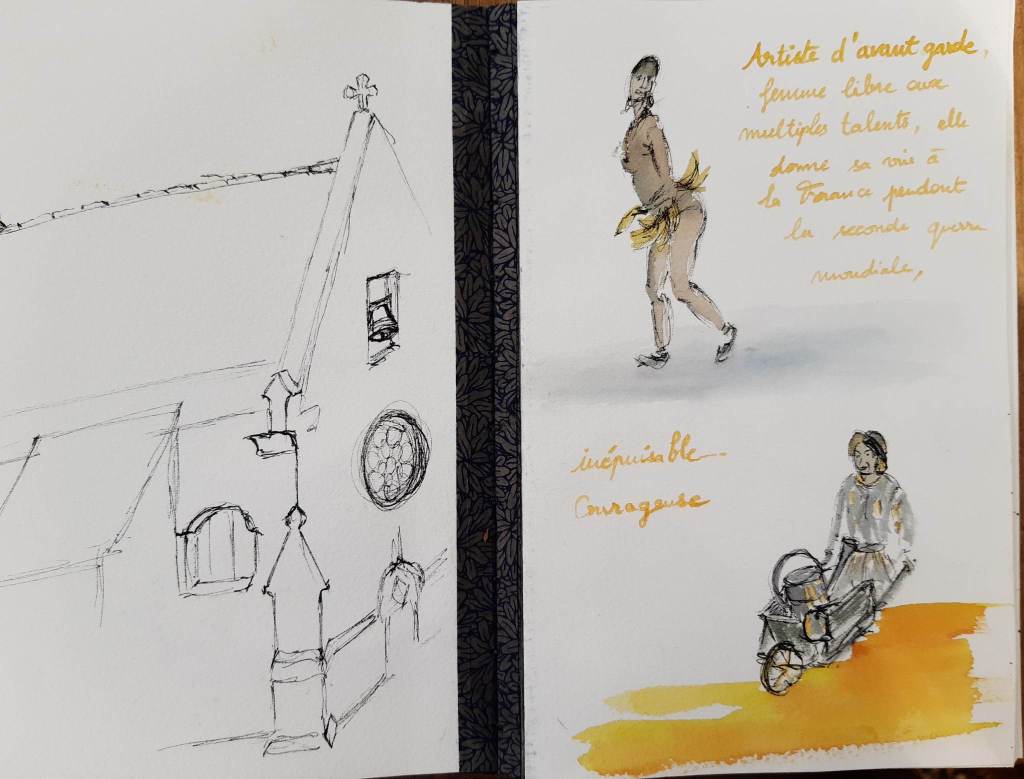 Artiste d'avant garde,
femme libre aux
multiples talents, elle
donne sa vie à
la France pendant
la seconde guerre
mondiale,
inépuisable
Courageuse